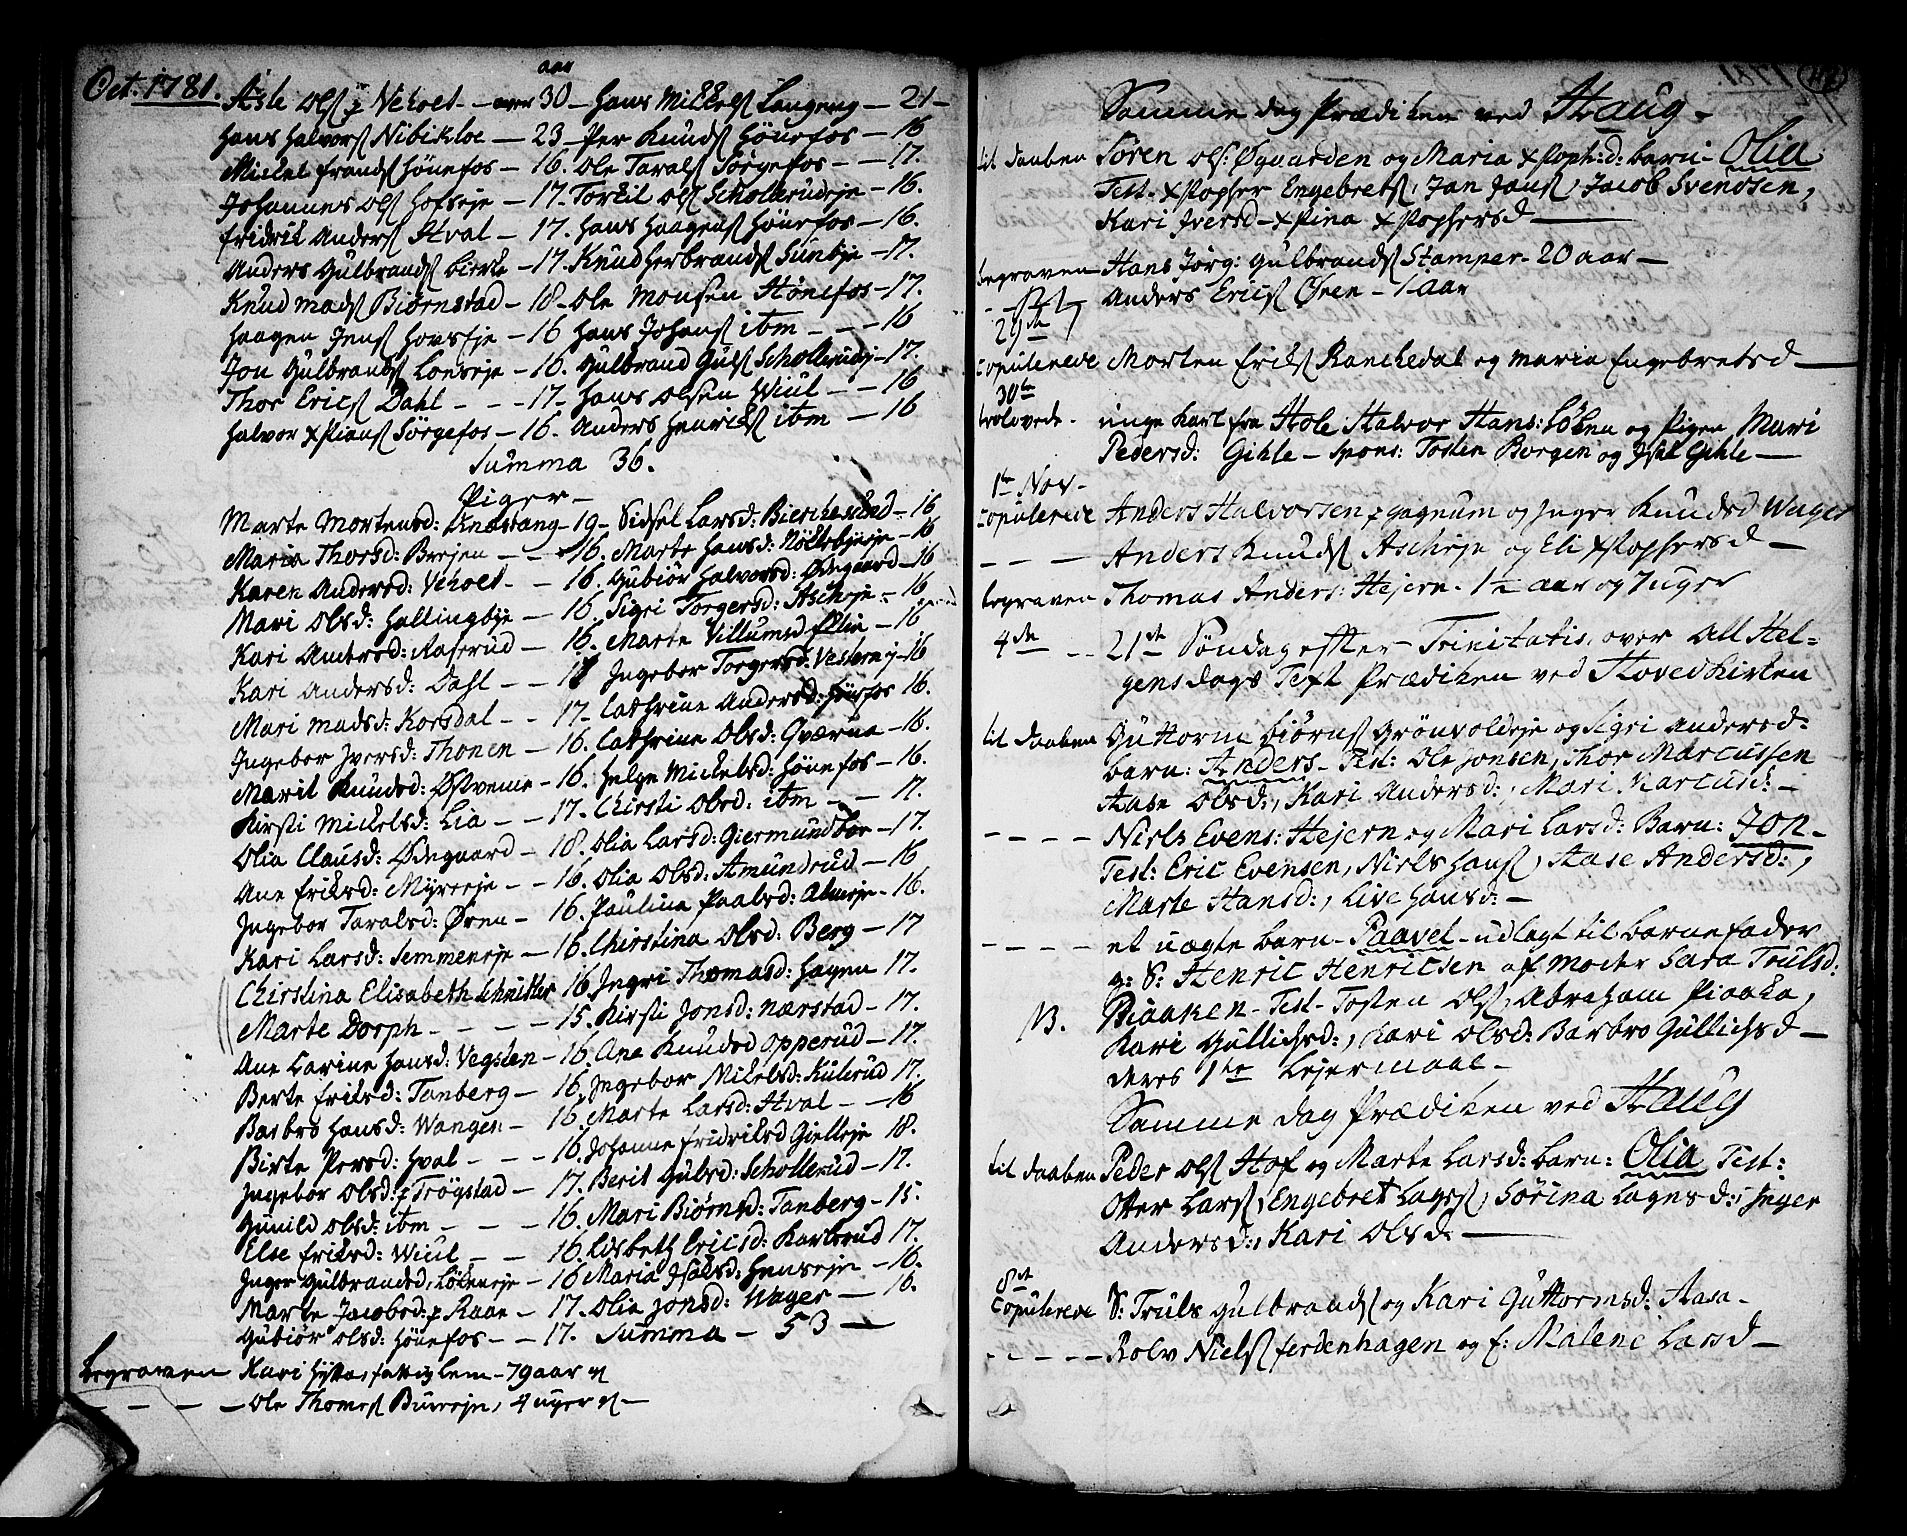 Oct. 1781.
aar
Asle Ols. p Vehoel - 30 - Hans Mikkels. Langeng - 21 -
Hans Halvors. Nibikloe - 23 - Per Knuds. Hönefos - 16
Mickel Frands. Hönefos - 16. Ole Tarals. Sörgefos - - 17.
Johannes Ols. Hofseje - 17. Torkil Ols. Schollerudeje - 16.
Fridrik Anders. Hval - 17. Hans Haagens. Hönefos - 16.
Anders Gulbrands. Bierke - 17. Knud Herbrands. - 17.
Knud Mads. Biörnstad - 18 - Ole Monsen Hönefos - 17.
Haagen Jens. Hovseje - 16 Hans Johans. itm - - - 16
Jon Gulbrands. Lonseje - 16. Gulbrand Guls. Schollerudej - 17.
Thor Erics. Dahl - - - 17 - Hans Olsen Wiul - - 16
Halvor Xstians. Sörgefos - 16. Anders Henriks. itm - 16
Summa 36.
Piger -
Marte Mortensd: - 19 - Sidsel Larsd: Bierkesund - 16
Maria Thorsd: - - 16. Marte Hansd: - 16
Karen Andersd: Vehoel - - 16. Gubiör Halvorsd: Ödegaard - 16
Mari Olsd: Hallingbye - 16. Sigri Torgersd: Ascheje - 16
Kari Amb.rsd: Aaserud - 16. Marte Villumsd - 16
Kari Andersd: Dahl - - 18 Ingebor Torgersd: Vestern ej - 16
Mari Madsd: Korsdal - - 17 - Cathrine Andersd: Hönefos 16.
Ingebor Iversd: Thonen - 16. Cathrine Olsd: Gværna - 16.
Marit Knudsd: Östverne - 16. Helge Mickelsd: Hönefos - 16.
Kirsti Mickelsd: Lia - - 17. Chirsti Olsd: itm - - 17.
Olia Clausd: Ödegaard - 18. Olia Larsd: Giermundboe - 17.
Ane Eriksd: Myreeje - - 16. Olia Olsd: Amundrud - 16
Ingebor Taralsd: Ören - 16. Paulina Paalsd: Almeje - 16.
Kari Larsd: Semmeneje - 16. Chirstina Olsd: Berg - 17
Chirstina Elisabeth Schnitler 16. Ingri Thomasd: Hagen 17.
Marte Dorph - - - - 15. Kirsti Jonsd: Nærstad - 17.
Ane Carine Hansd: Vegsten - 16. Ane Knudsd Opperud - 17.
Berte Eriksd: Tanberg - 16. Ingebor Mikelsd: Kulerud 17.
Barbro Hansd: Wangen - 16. Marte Larsd: Hval - - 16
Birte Persd: Hval - - - 16. Johanne Fridriksd Gielleje 18.
Ingebor Olsd: p Trögstad - 17. Berit Gulsd: Schollerud - 17.
Gunild Olsd: itm - - - 16. Mari Biörnsd: Tanberg - 15.
Else Eriksd: Wiul - - 16. Lisbeth Ericsd: Karlsrud 17.
Inger Gulbrandsd: Lökeneje - 16 Maria Isaksd: Henseje - 16.
Marte Jacobsd: p Raae - 17. Olia Jonsd: Wager - - 16.
Gubiör Olsd: Hönefos - - 17. Summa - 53 -
Begraven Kari Hytta, fattig lem - 79 aar
- - - - Ole Thomes. Bureeje, 4 uger -
Samme dag Prædiken ved Haug -
til daaben Sören Ols: Øgaarden og Maria Xstoph:d: barn - Olia
Test - Xstopher Engebrets. Jan Jans. Jacob Svendsen,
Kari Iversd - Xstina Xstophersd -
begraven Hans Jörg: Gulbrands. Stamper - 20 aar -
Anders Erics. Ören - 1 aar
29de
Copulerede Morten Eriks. Ranchedal og Maria Engebretsd -
30te
trolovede - unge karl fra Hole Halvor Hans: Lökna og Pigen Mari
Pedersd: Gihle - spons: Tosten Borgen og Gihle -
1te Nov -
Copulerede Anders Halvorsen p Gagnum og Inger Knudsd Wager
- - - Anders Knuds. Ascheje og Eli Xstophersd -
begraven Thomas Anders: Hejern - 1½ aar og 7 uger
4de - - 21de Söndag efter Trinitatis, over All Hel=
gens dags Text Prædiken ved Hoved Kirken
til daaben Guttorm Biörns. Grönvoldeje og Sigri Andersd:
barn: Anders - Test: Ole Jonsen, Thor Marcussen
Aase Olsd:, Kari Andersd:, Mari Marcusd: -
- - - - Niels Evens: Hejern og Mari Larsd: Barn: Jon -
Test: Eric Evensen, Niels Hans. Aase Andersd:,
Marte Hansd:, Live Hansd: -
- - - - et uægte barn - Paavel - udlagt til barnefader
g: S: Henric Henricsen af moder Sara Trulsd:
N3. Piaaken - Test - Tosten Ols. Abraham Piaaka,
Kari Gullichsd:, Kari Olsd: Barbro Gullichsd -
deres 1te Lejermaal -
Samme dag Prædiken ved Haug
til daaben Peder Ols. Hof og Marte Larsd: barn: Olia Test:
Otter Lars. Engebret Lages. Sörina Lagesd:, Inger
Andersd:, Kari Olsd. -
8de
Copulerede S: Truls Gulbrands. og Kari Guttormsd: Aasa -
- - - - Rolv Niels. Ferdenhagen og f: Malene Larsd -